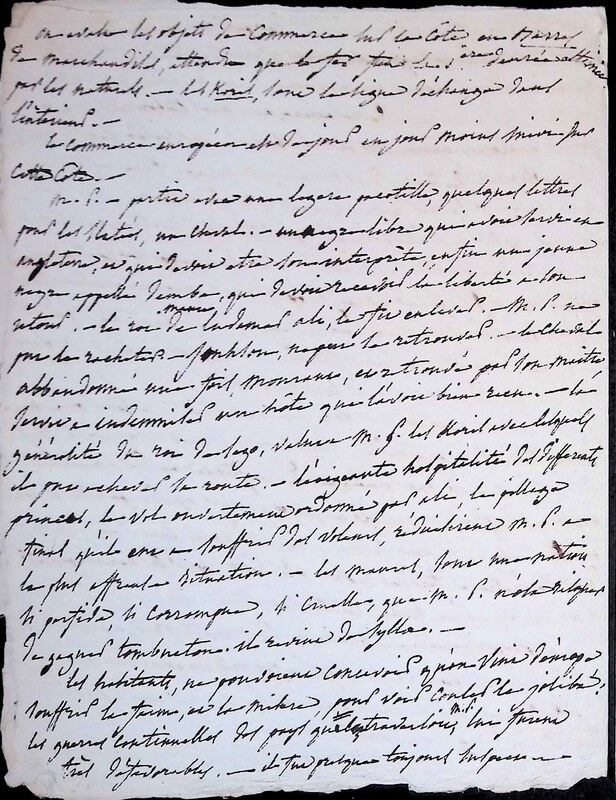 on evalue les objets de Commerce sur la Côte en Barres
de marchandises, attendu que le fer fut la 1ere denrée
par les naturels. — les Koris, sont le signe d'échange dans
l'intérieur. —
le Commerce européen est de jour en jour moins suivi sur
Cette Côte. —
M. P. — partit avec une legere pacotille, quelques lettres
pour les Slatés, un cheval. — un negre libre qui avoit servi en
angleterre, et qui devoit etre son interprète, enfin un jeune
negre appellé demba, qui devoit recevoir la liberté a son
retour. — le roi maure de ludamar ali, le fit enlever. — M. P. ne
put le racheter. — Jonhson, ne put le retrouver. — le cheval
abbandonné une fois, mourant, et retrouvé par son maitre
servit a indemniser un hôte qui l'avoit bien reçu. — la
générosité du roi de Sego, valut a M. P. les Koris avec lesquels
il put achever sa route. — l'exigeante hospitalité des differents
princes, le vol ouvertement ordonné par ali, le pillage
final qu'il eut a souffrir des voleurs, réduisirent M. P. a
la plus affreuse situation. — les maures, sont une nation
si perfide, si corrompue, si cruelle, que M. P. n'osa risquer
de gagner tombuctou. il revint de Sylla. —
les habitants, ne pouvoient concevoir qu'on vint d'europe
souffrir la faim, et la misere, pour voir couler le joliba!
les guerres continuelles des pays que traversoit M. P. lui furent
très défavorables. — il fut presque toujours suspect —